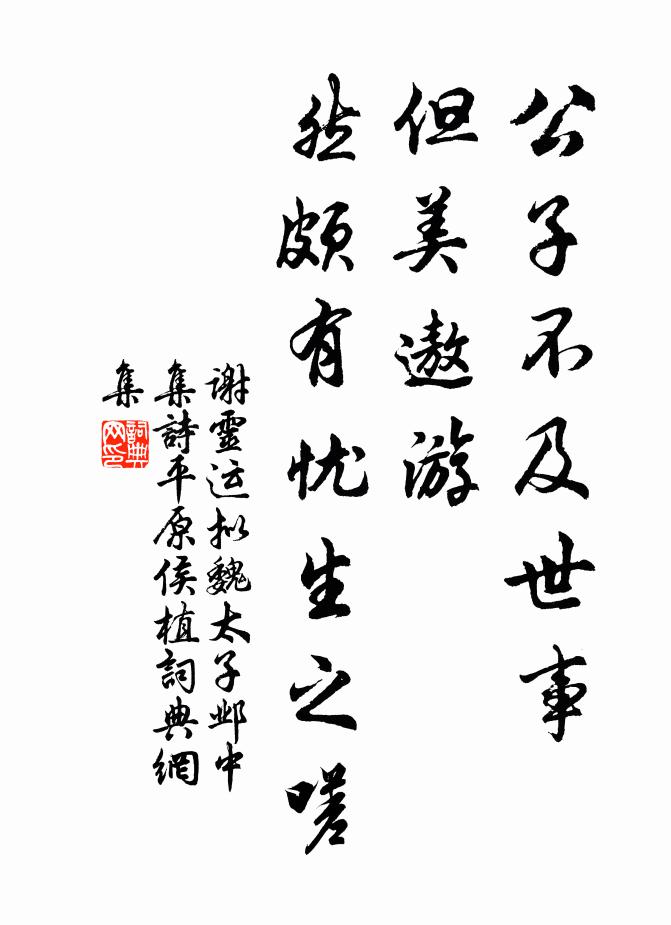 公子不及世事
但美遨游
然颇有忧生之嗟
谢靈运拟魏太子邺中
集詩平原侯植詞典網
集
詞典
网印